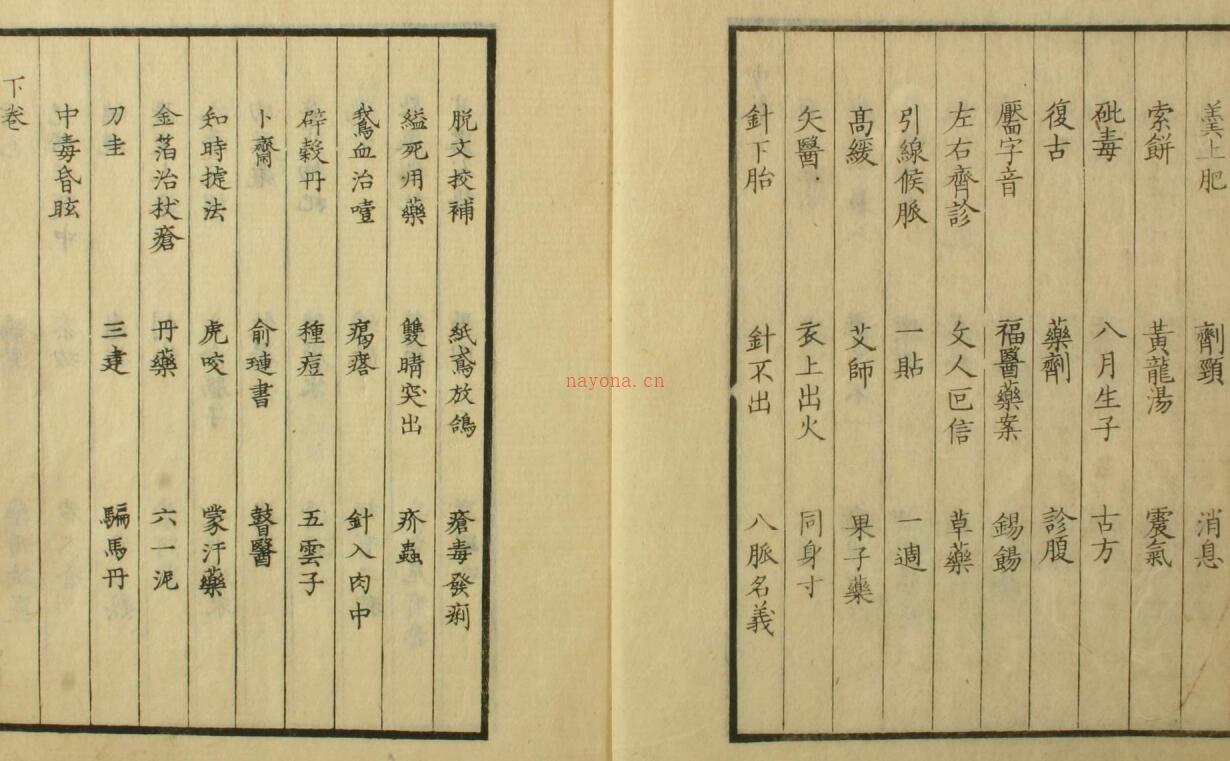 羹上肥 劑頸 消息
索餅 黃龍湯 震氣
砒毒 八月生子 古方
復古 藥劑 診腹
靨字音 福醫藥案 錫餳
左右齊診 文人叵信 草藥
引線候脈 一貼 一週
髙緩 艾師 果子藥
矢醫 衣上出火 同身寸
針下胎 針不出 八脈名義
脫文挍補 紙鳶放鴿 瘡毒發痢
縊死用藥 雙睛突出 疥蟲
鵞血治噎 瘑瘩 針入肉中
辟穀丹 種痘 五雲子
卜齋 俞璉書 瞽醫
知時捷法 虎咬 蒙汗藥
金箔治杖瘡 丹藥 六一泥
刀圭 三建 騙馬丹
中毒昏眩
下卷
nayona.cn